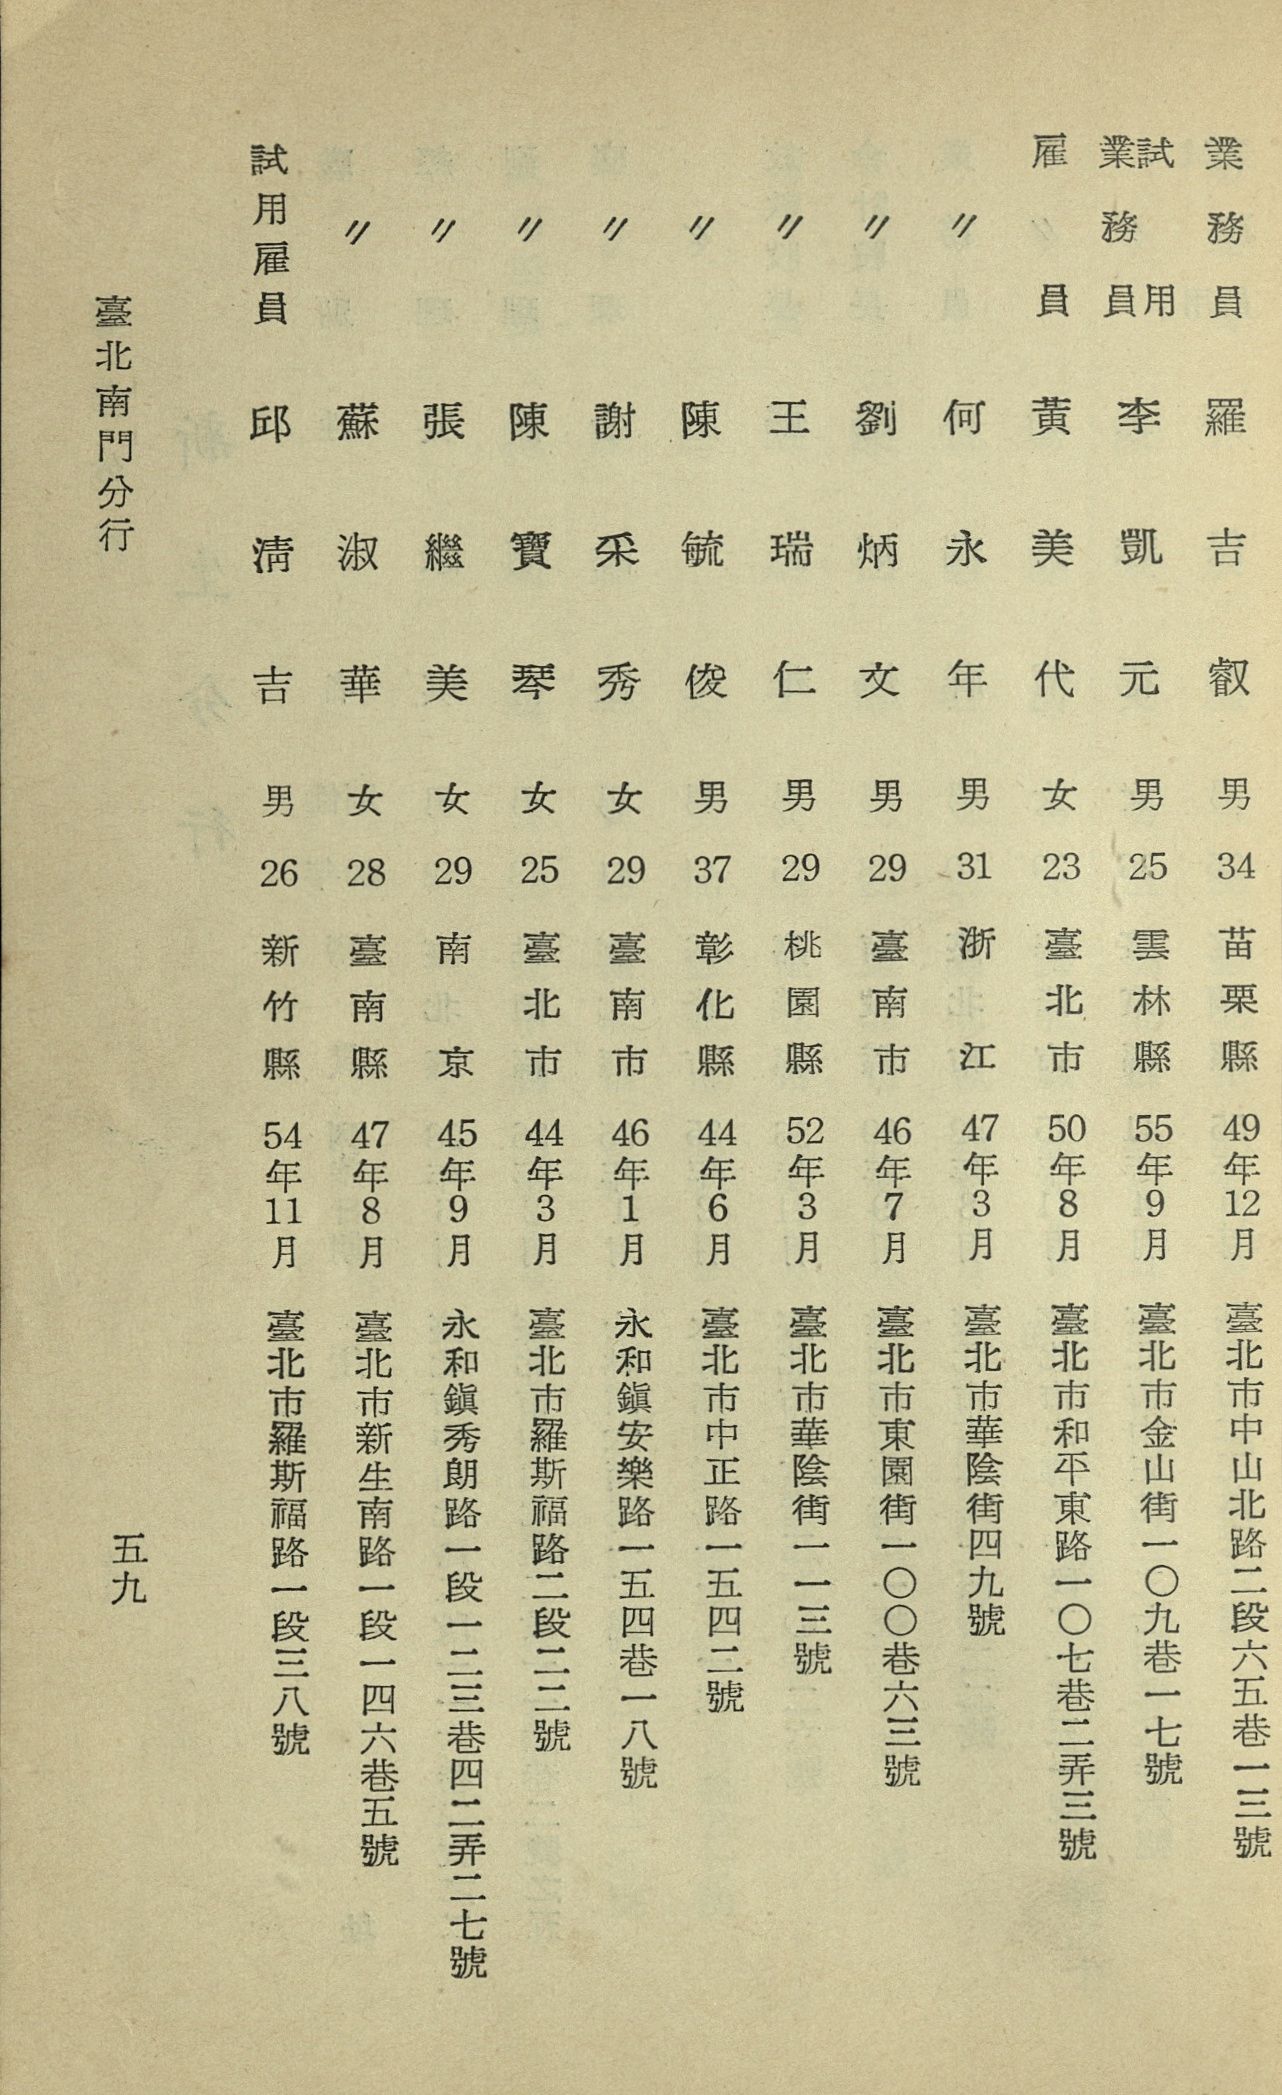 業務員 羅吉叡 男 34 苗栗縣 49年12月 臺北市中山北路二段六五巷一三號
試用業務員 李凱元 男 25 雲林縣 55年9月 臺北市金山街一〇九巷一七號
雇員 黃美代 女 23 臺北市 50年8月 臺北市和平東路一〇七巷二弄三號
〃 何永年 男 31 浙江 47年3月 臺北市華陰街四九號
〃 劉炳文 男 29 臺南市 46年7月 臺北市東園街一〇〇巷六三號
〃 王瑞仁 男 29 桃園縣 52年3月 臺北市華陰街一一三號
〃 陳毓俊 男 37 彰化縣 44年6月 臺北市中正路一五四二號
〃 謝采秀 女 29 臺南市 46年1月 永和鎭安樂路一五四巷一八號
〃 陳寶琴 女 25 臺北市 44年3月 臺北市羅斯福路二段二二號
〃 張繼美 女 29 南京 45年9月 永和鎭秀朗路一段一二三巷四二弄二七號
〃 蘇淑華 女 28 臺南縣 47年8月 臺北市新生南路一段一四六巷五號
試用雇員 邱淸吉 男 26 新竹縣 54年11月 臺北市羅斯福路一段三八號
臺北南門分行
五九